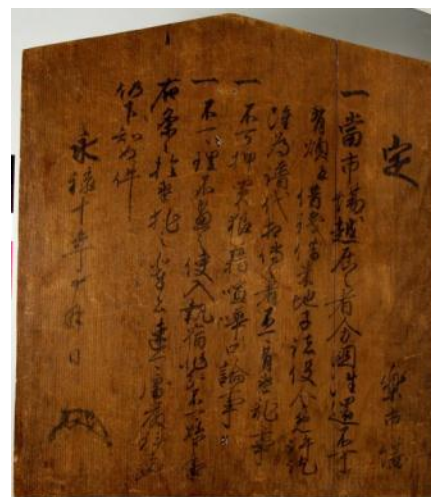 定
樂市場
一當市場越居之者分國往還不可
有煩并借錢借米地子諸役令免許訖
雖為譜代相傳之者不可有違乱之事
一不可押買狼藉喧嘩口論事
一不可理不盡之使入執宿非分不可懸申事
右条々於違犯之輩者速可處嚴科者也
仍下知如件
永祿十年十月日